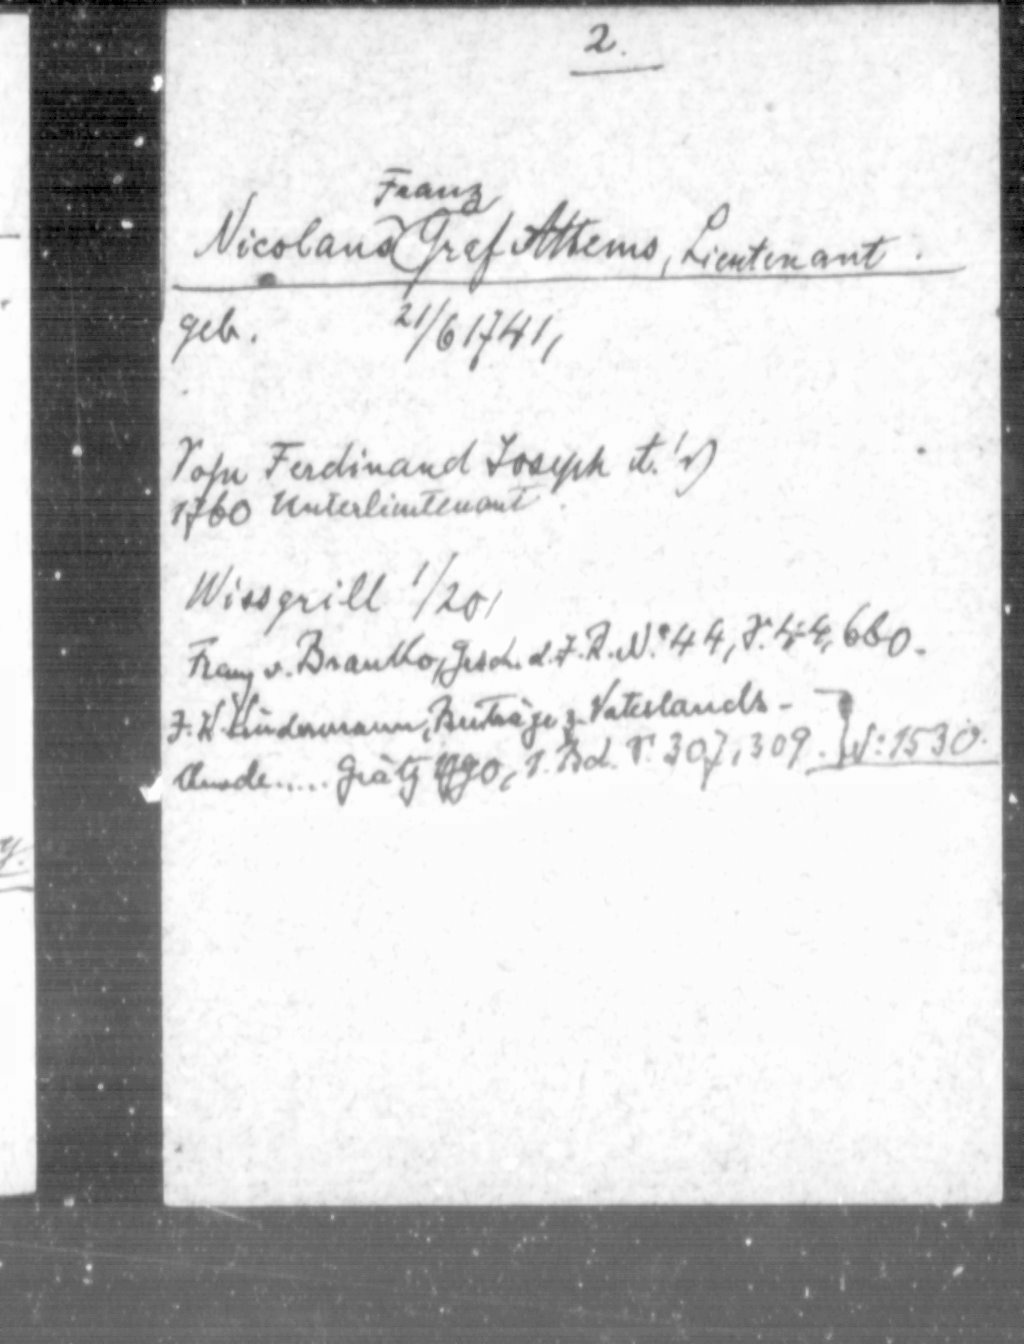 2.
Franz
Nicolaus Graf Atthems, Lieutenant.
geb. 21/6 1741,
Sohn Ferdinand Joseph A.'s)
1760 Unterlieutenant
Wissgrill 1/201
Franz v. Branko, Gesch. d. I. R. N.° 44, S. 44, 660.
Beiträge z. Vaterlands-
kunde..... Grätz 1790, 1. Bd. S. 307, 309. } N: 1530.